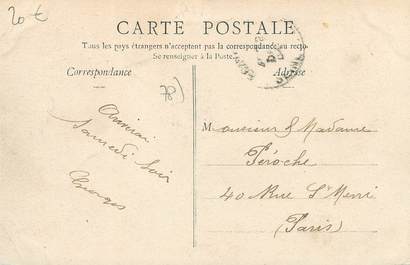 20 €
CARTE POSTALE
Tous les pays étrangers n'acceptent pas la correspondance au recto
Se renseigner à la Poste
Correspondance
Adresse
78)
Arriverai
Samedi soir
Georges
Monsieur & Madame
Péroche
40 Rue St Merri
(Paris)